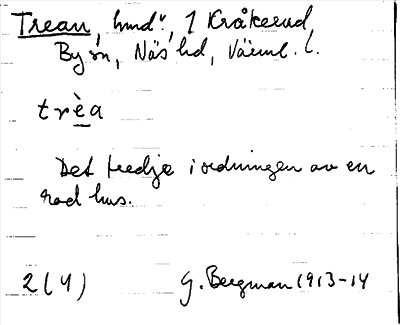 Trean, hmd", 1 Kråkerud
By sn, Näs hd, Värml. l.
trèa
Det tredje i ordningen av en
rad hus.
2(4) G. Bergman 1913-14